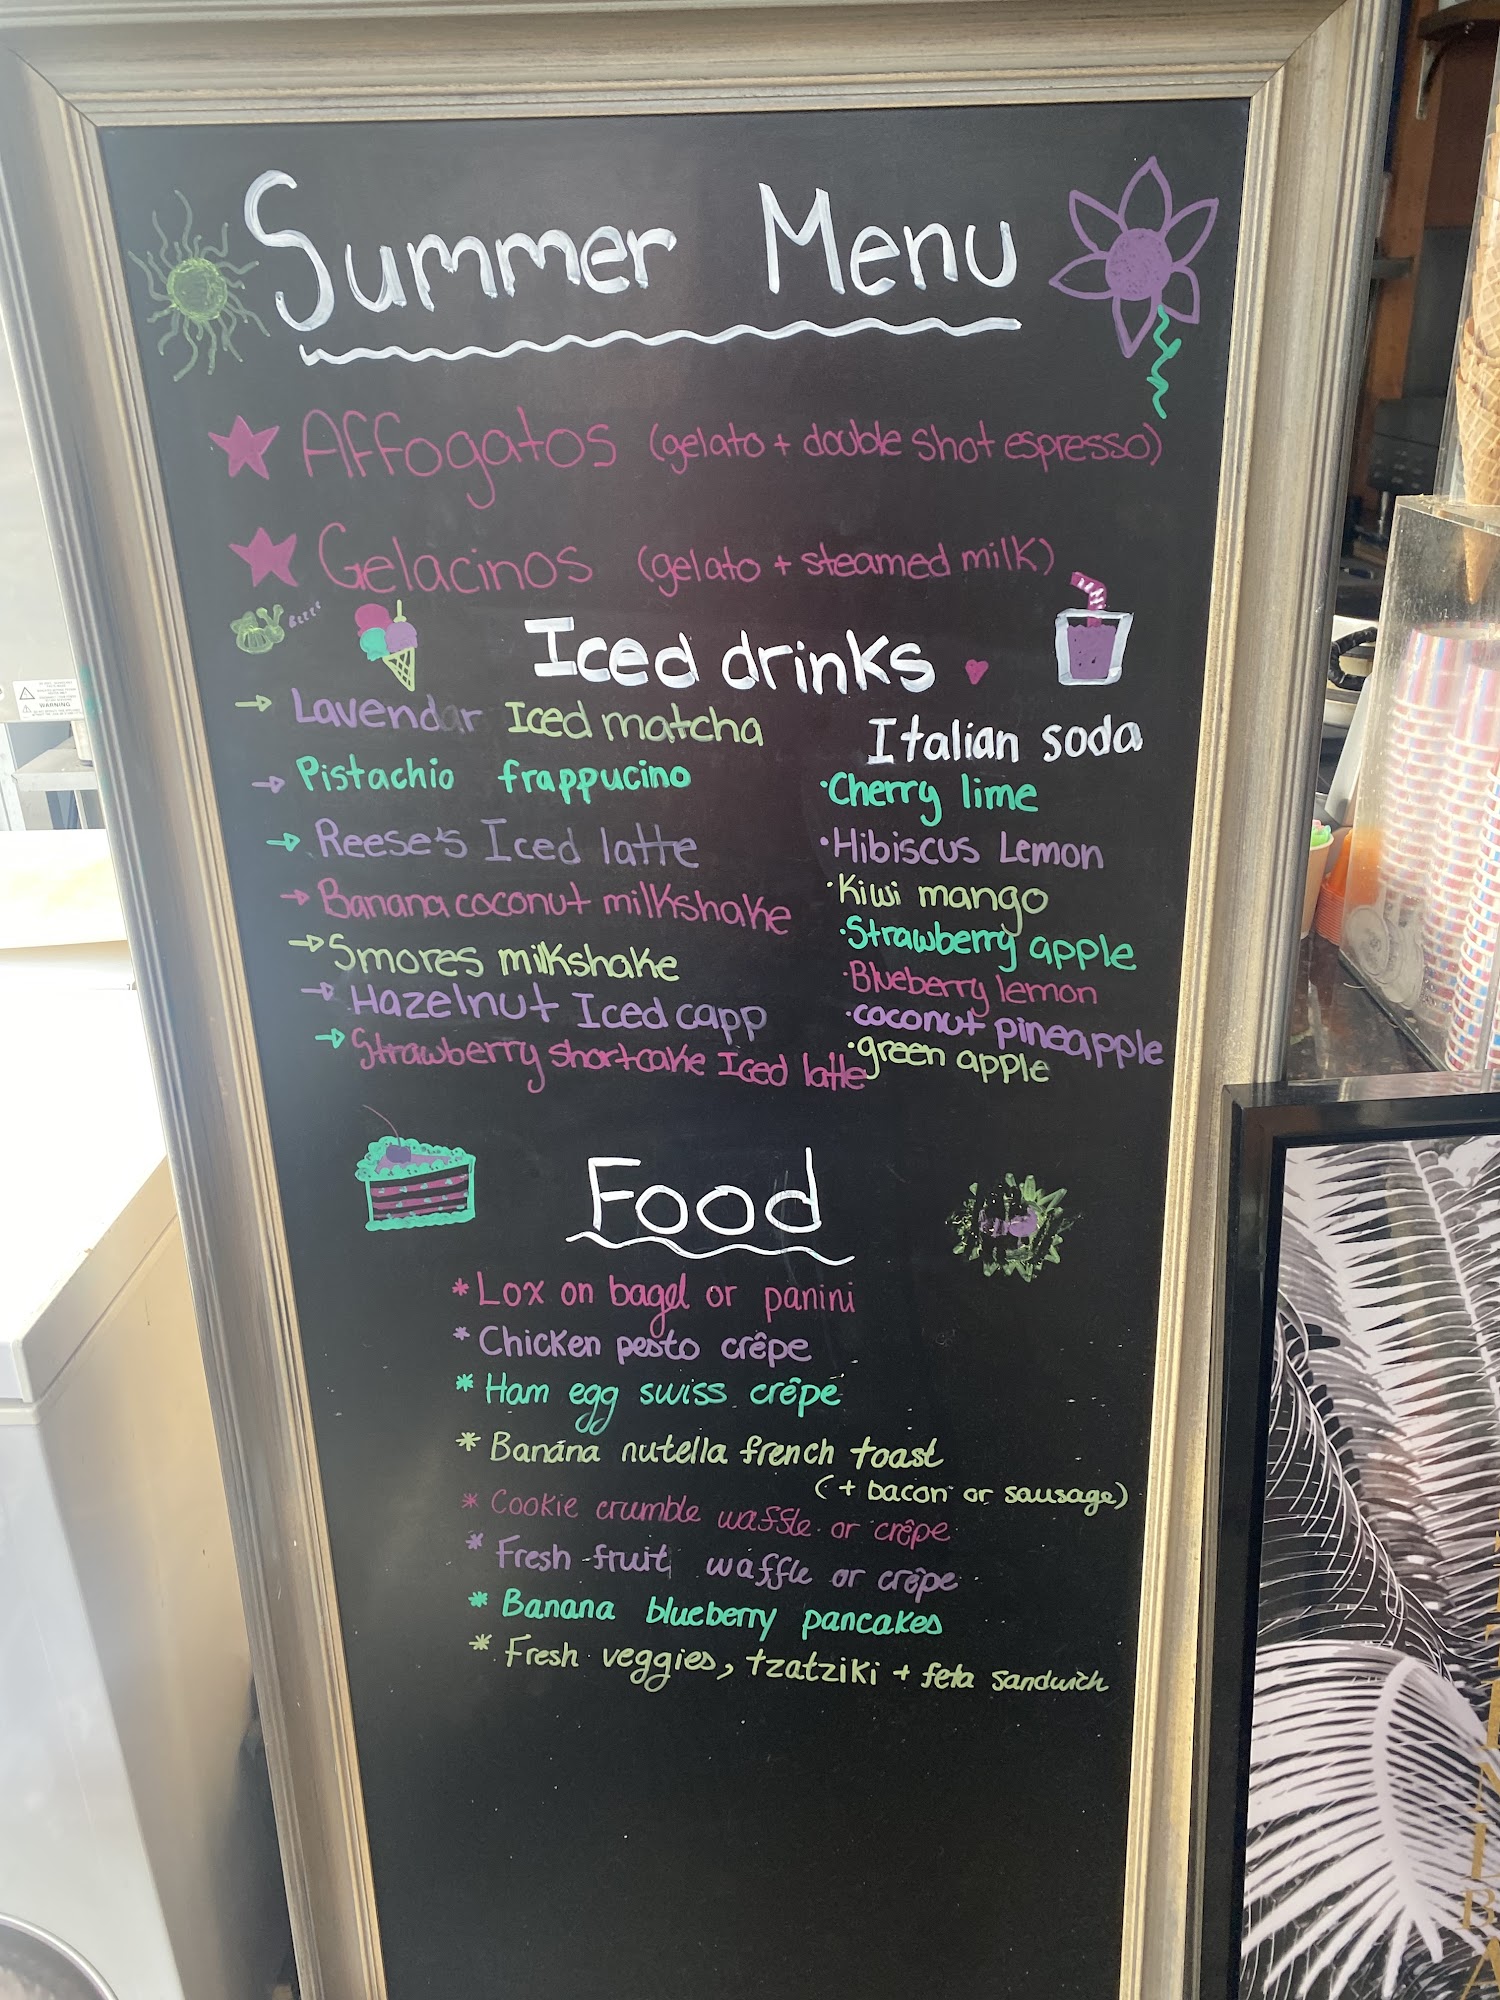 Summer Menu
Affogatos (gelato + double shot espresso)
Gelacinos (gelato + steamed milk)
Bzzzz
Iced drinks
→ Lavendar Iced matcha
→ Pistachio frappucino
→ Reese's Iced latte
→ Banana coconut milkshake
→ Smores milkshake
→ Hazelnut Iced capp
→ Strawberry shortcake Iced latte
Italian soda
·Cherry lime
·Hibiscus Lemon
·Kiwi mango
·Strawberry apple
·Blueberry lemon
·coconut pineapple
·green apple
Food
* Lox on bagel or panini
* Chicken pesto crêpe
* Ham egg swiss crêpe
* Banana nutella french toast
(+ bacon or sausage)
* Cookie crumble waffle or crêpe
* Fresh fruit waffle or crêpe
* Banana blueberry pancakes
* Fresh veggies, tzatziki + feta sandwich
WARNING